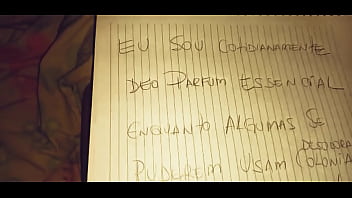 EU SOU COTIDIANAMENTE
DEO PARFUM ESSENCIAL
ENQUANTO ALGUMAS SE
PUDEREM USAM COLONIA